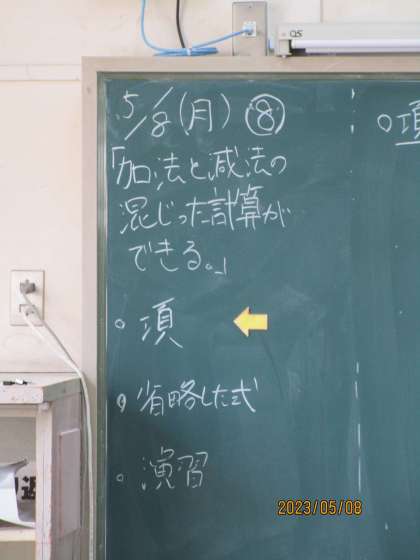 5/8(月) ⑧
「加法と減法の
混じった計算が
できる。」
。項
。省略した式
。演習
。項
2023/05/08